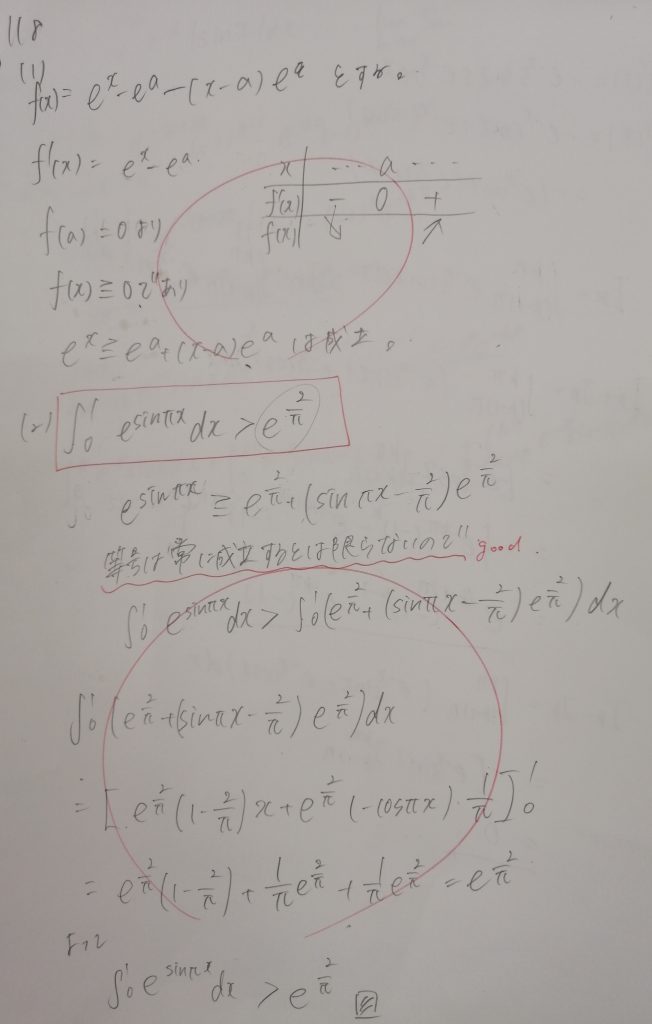 118
(1)
f(x) = e^x - e^a - (x-a)e^a とする。
f'(x) = e^x - e^a.
x | ... a ...
f'(x) | - 0 +
f(x) | ↘ ↗
f(a) = 0 より
f(x) ≧ 0 であり
e^x ≧ e^a + (x-a)e^a は成立。
(2) ∫_0^1 e^{sinπx} dx > e^{2/π}
e^{sinπx} ≧ e^{2/π} + (sinπx - 2/π) e^{2/π}
等号は常に成立するとは限らないので good.
∫_0^1 e^{sinπx} dx > ∫_0^1 (e^{2/π} + (sinπx - 2/π) e^{2/π}) dx
∫_0^1 (e^{2/π} + (sinπx - 2/π) e^{2/π}) dx
= [e^{2/π} (1 - 2/π) x + e^{2/π} (-cosπx) · 1/π]_0^1
= e^{2/π} (1 - 2/π) + 1/π e^{2/π} + 1/π e^{2/π} = e^{2/π}
よって
∫_0^1 e^{sinπx} dx > e^{2/π}